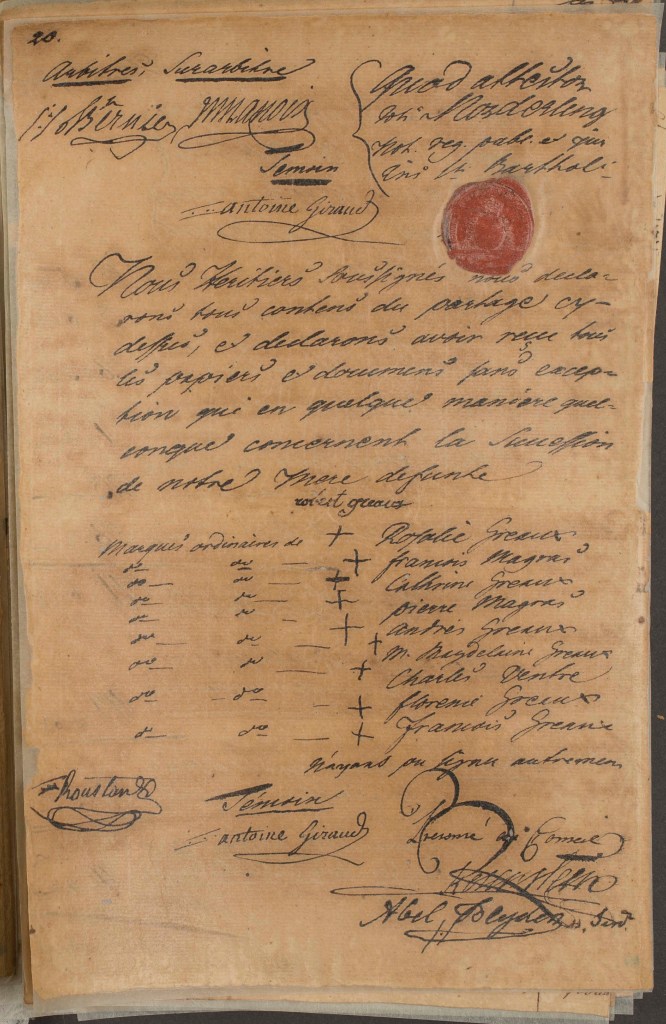 20.
Arbitres, Surarbitre
Bernier
Quod attestor
Norderling
Not. reg. publ. et jur
Ins. St. Barthol:
Temoin
antoine Giraud
Nous Heritiers soussignés nous decla-
rons tous contens du partage cy-
dessus, et declarons avoir reçu tous
les papiers et documens sans excep-
tion qui en quelque manière quel-
conque concernent la Succession
de notre Mere defunte
greaux
Marques ordinaires de + Rosalie Greaux
do do — + francois Magras
do — do — + Cathrine Greaux
do do — + pierre Magras
do do - + andrés Greaux
do do — + M. Magdelaine Greaux
do do — + Charles Ventre
do - do — + florence Greaux
do — do — + francois Greaux
N'ayant pu signer autrement
Témoin
antoine Giraud
Presomé au Conseil
Abel